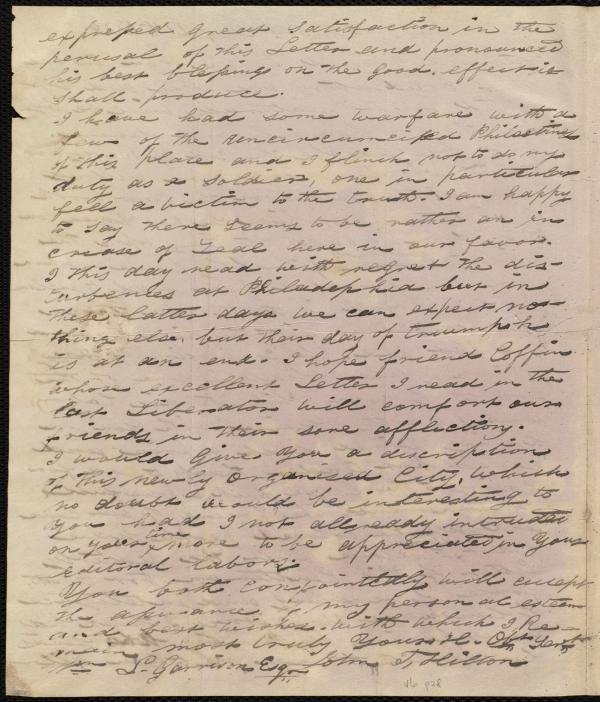 expressed great satisfaction in the
perusal of this Letter and pronounced
his best blessings on the good effect it
shall produce.
I have had some warfare with a
few of the uncircumcised Philistines
of this place and I flinch not to do my
duty as a soldier, one in particular
fell a victim to the truth. I am happy
to say there seems to be rather an in
crease of zeal here in our favor.
I this day read with regret the dis-
turbences at Philadephia but in
these latter days we can expect no-
thing else, but their day of triumph
is at an end. I hope friend Coffin
whose excellent Letter I read in the
last Liberator will comfort our
friends in their sore affliction.
I would give you a discription
of this newly organised City, which
no doubt would be interesting to
you had I not allready intruded
on your time more to be appreciated in your
editoral labors.
You both conjointly will except
the assurance of my personal esteem
and best wishes with which I Re-
main most truly Yours
Wm L. Garrison Esq. John T. Hilton
v6 p28